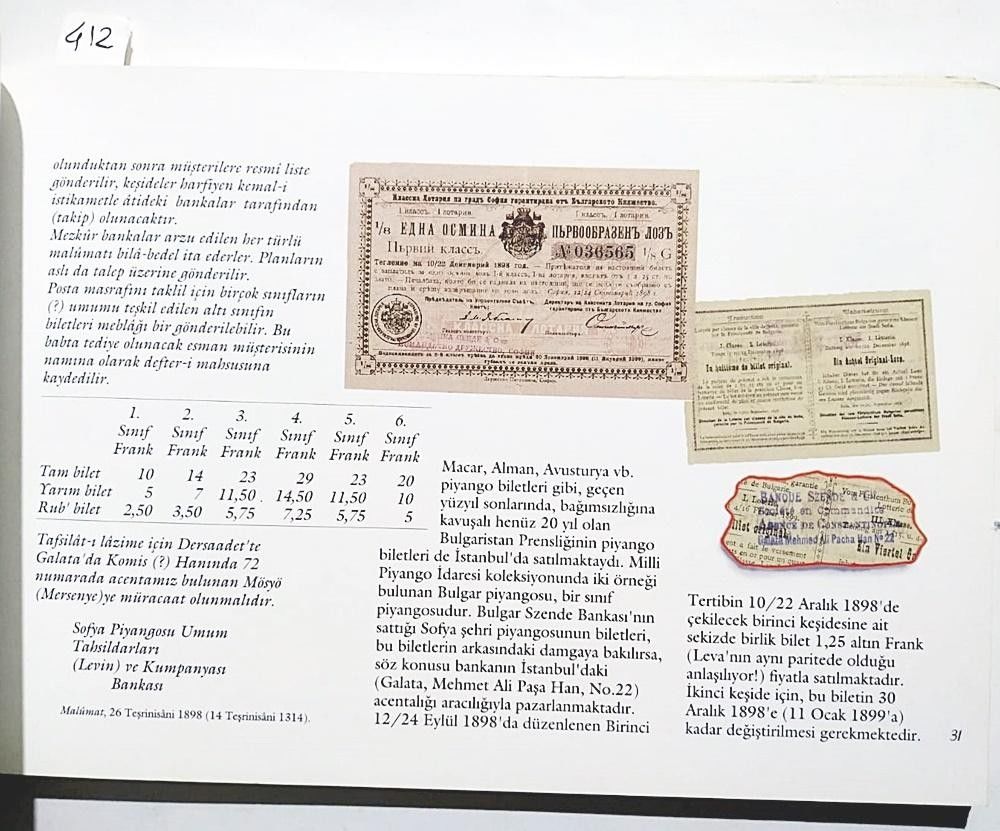 412
olunduktan sonra müşterilere resmî liste
gönderilir, keşideler harfiyen kemal-i
istikametle âtideki bankalar tarafından
(takip) olunacaktır.
Mezkûr bankalar arzu edilen her türlü
malûmatı bilâ-bedel ita ederler. Planların
aslı da talep üzerine gönderilir.
Posta masrafını taklil için birçok sınıfların
(?) umumu teşkil edilen altı sınıfın
biletleri meblâğı bir gönderilebilir. Bu
babta tediye olunacak esman müşterisinin
namına olarak defter-i mahsusuna
kaydedilir.
1. 2. 3. 4. 5. 6.
Sınıf Sınıf Sınıf Sınıf Sınıf Sınıf
Frank Frank Frank Frank Frank Frank
Tam bilet 10 14 23 29 23 20
Yarım bilet 5 7 11,50 . 14,50 11,50 10
Rub' bilet 2,50 3,50 5,75 7,25 5,75 5
Tafsilât-ı lâzime için Dersaadet'te
Galata'da Komis (?) Hanında 72
numarada acentamız bulunan Mösyö
(Mersenye)ye müracaat olunmalıdır.
Sofya Piyangosu Umum
Tahsildarları
(Levin) ve Kumpanyası
Bankası
Malûmat, 26 Teşrinisâni 1898 (14 Teşrinisâni 1314).
Класна Лотария на градъ София гарантирана отъ Българското Княжество.
I классъ. I лотария. I классъ. I лотария.
1/8 ЕДНА ОСМИНА ПЪРВООБРАЗЕНЪ ЛОЗЪ
Първий классъ. № 036565 1/8 G
Тегление на 10/22 Декемврий 1898 год.
КЛАССНА ЛОТАРИЯ
I. Classe. I. Loterie
Un huitième de billet original.
I. Klasse. I. Lotterie.
Ein Achtel Original-Loos.
BANQUE SZENDE & Cie
Société en Commandite
AGENCE DE CONSTANTINOPLE
Galata Mehmed Ali Pacha Han No 22
Ein Viertel
Macar, Alman, Avusturya vb.
piyango biletleri gibi, geçen
yüzyıl sonlarında, bağımsızlığına
kavuşalı henüz 20 yıl olan
Bulgaristan Prensliğinin piyango
biletleri de İstanbul'da satılmaktaydı. Milli
Piyango İdaresi koleksiyonunda iki örneği
bulunan Bulgar piyangosu, bir sınıf
piyangosudur. Bulgar Szende Bankası'nın
sattığı Sofya şehri piyangosunun biletleri,
bu biletlerin arkasındaki damgaya bakılırsa,
söz konusu bankanın İstanbul'daki
(Galata, Mehmet Ali Paşa Han, No.22)
acentalığı aracılığıyla pazarlanmaktadır.
12/24 Eylül 1898'da düzenlenen Birinci
Tertibin 10/22 Aralık 1898'de
çekilecek birinci keşidesine ait
sekizde birlik bilet 1,25 altın Frank
(Leva'nın aynı paritede olduğu
anlaşılıyor!) fiyatla satılmaktadır.
İkinci keşide için, bu biletin 30
Aralık 1898'e (11 Ocak 1899'a)
kadar değiştirilmesi gerekmektedir.
31